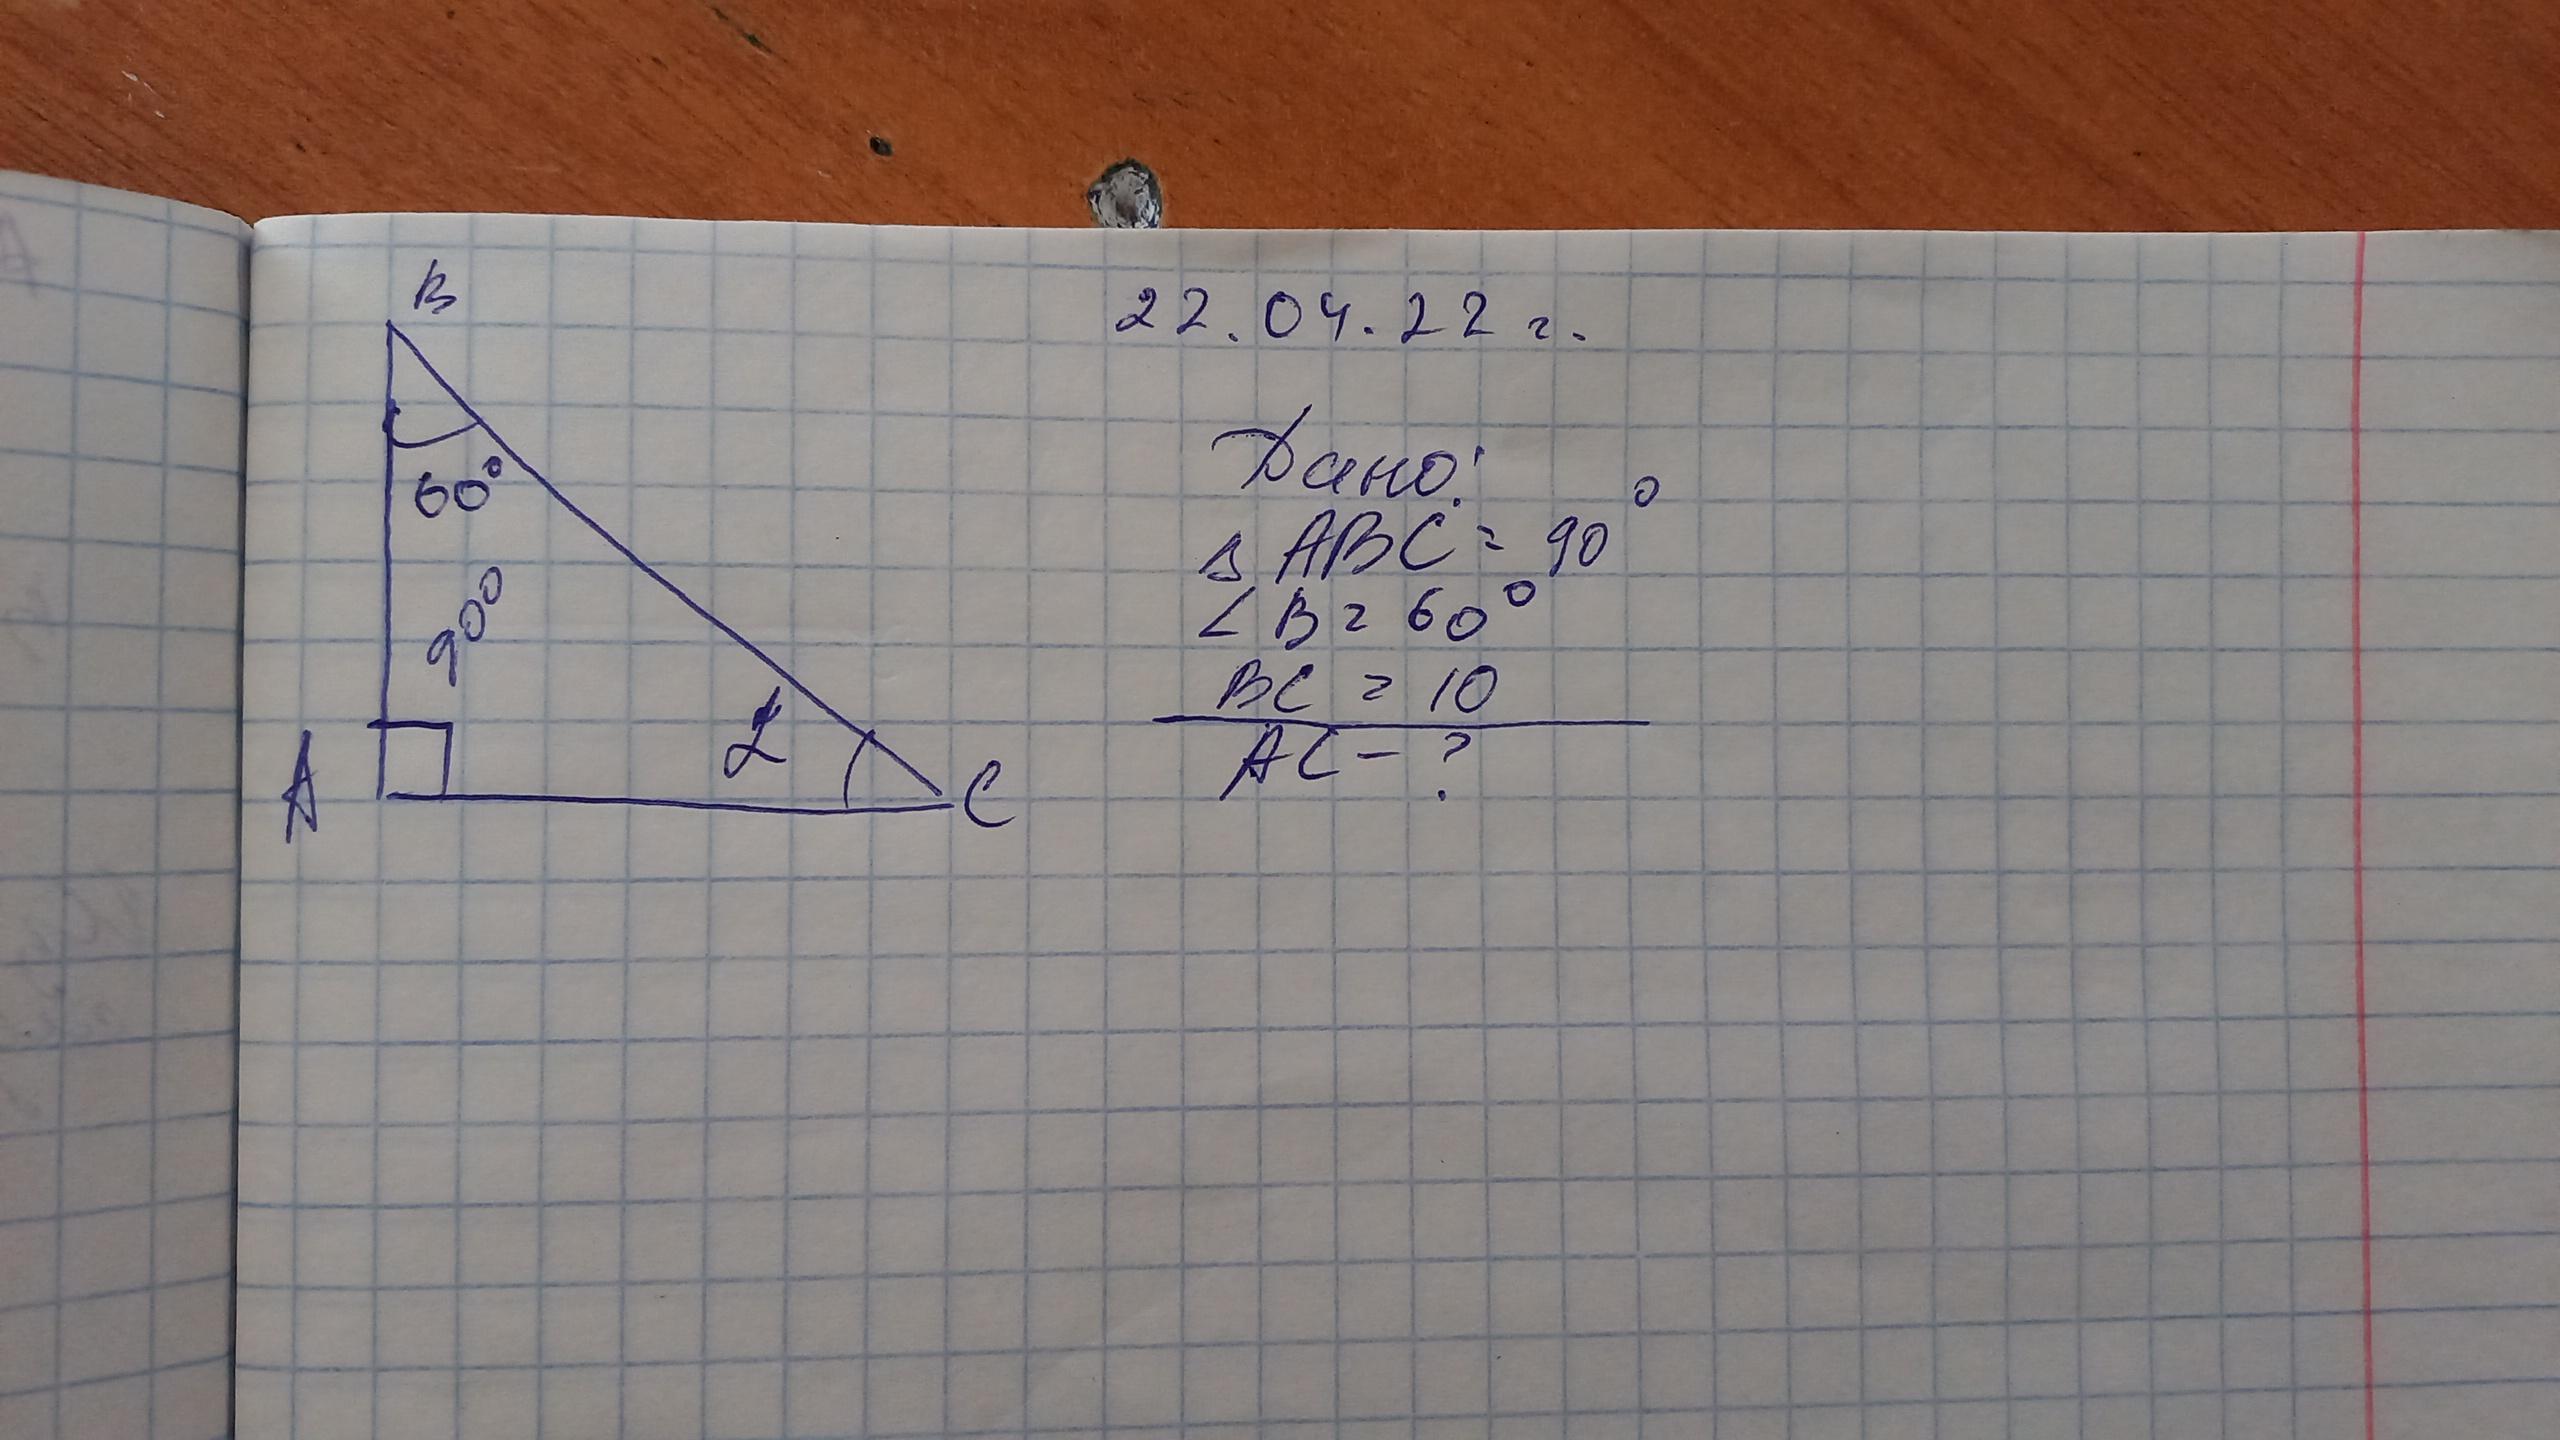 22.04.22 г.
B
60°
90°
A
α
C
Дано:
△ ABC = 90°
∠ B = 60°
BC = 10
AC - ?